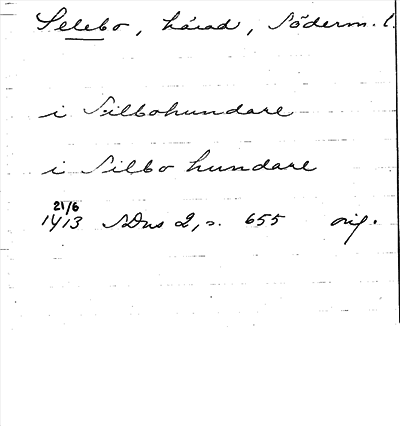 Selebo, härad, Söderm. l.
i Silbohundare
i Silbo hundare
21/6
1413 SDns 2, s. 655 orig.